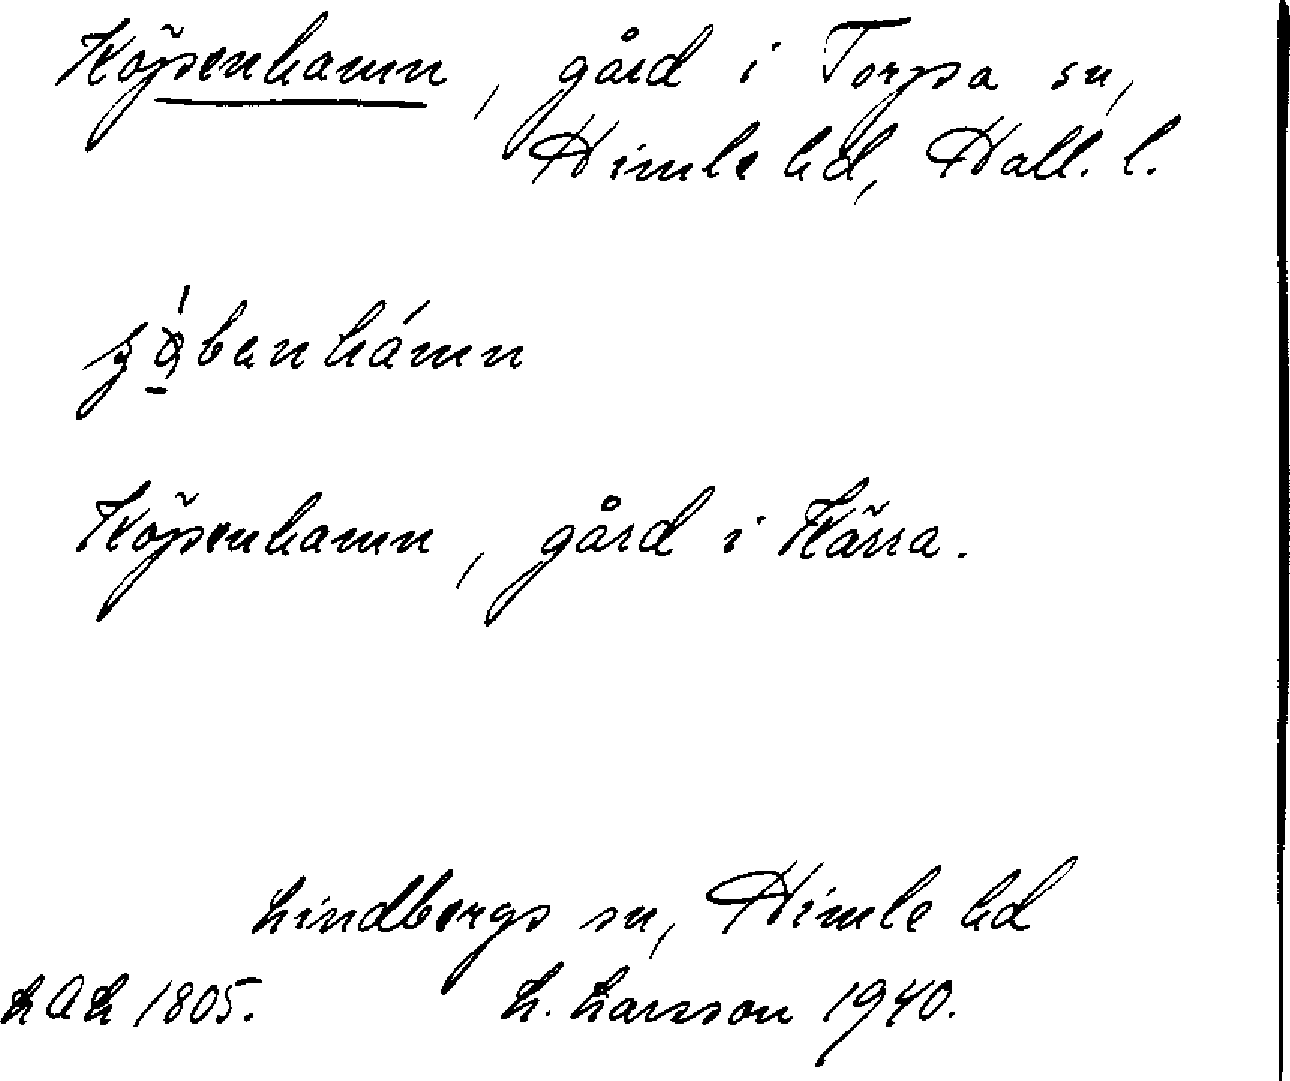 Köpenhamn, gård i Torpa sn,
Himle hd, Hall. l.
Köpenhamn, gård i Kärra.
Lindbergs sn, Himle hd
LAL 1805. L. Larsson 1940.